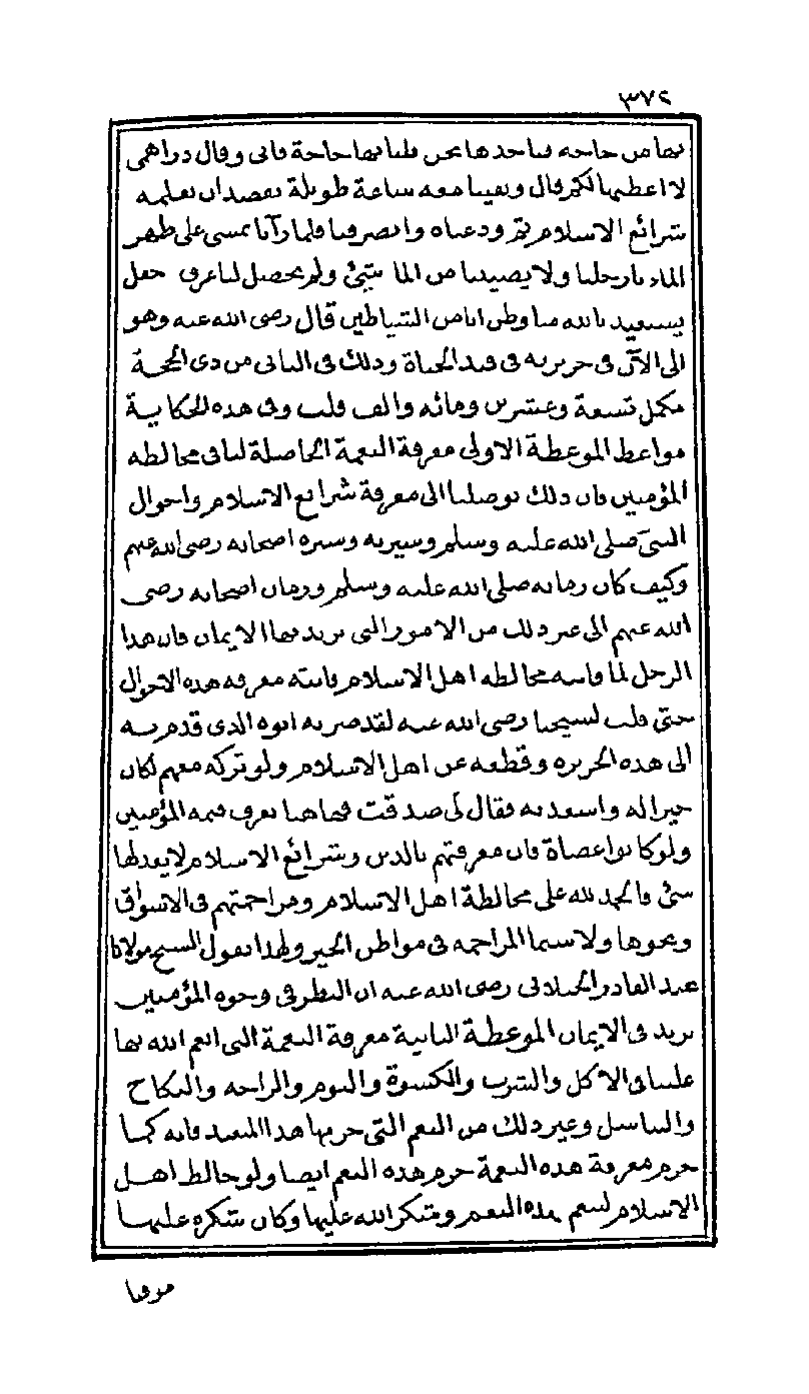 ٣٧٢
بها من حاجة فناخذها نحن قلنا بها حاجة فابى وقال دراهمى
لا اعطيها لكم قال وبقينا معه ساعة طويلة نقصد ان نعلمه
شرائع الاسلام ثم ودعناه وانصرفنا فلما رآنا نمشى على ظهر
الماء بارجلنا ولا يصيبنا من الما شئ ولم يحصل لنا غرق جعل
يستعيذ بالله منا وظن انا من الشياطين قال رضى الله عنه وهو
الى الآن فى جزيرته فى قيد الحياة وذلك فى الثانى من ذى الحجة
مكمل تسعة وعشرين ومائه والف قلت وفى هذه الحكاية
مواعظ الموعظة الاولى معرفة النعمة الحاصلة لنا فى مخالطة
المؤمنين فان ذلك توصلنا الى معرفة شرائع الاسلام واحوال
النبى صلى الله عليه وسلم وسيرته وسيرة اصحابه رضى الله عنهم
وكيف كان زمانه صلى الله عليه وسلم وزمان اصحابه رضى
الله عنهم الى غير ذلك من الامور التى يزيد بها الايمان فان هذا
الرجل لما فاته مخالطة اهل الاسلام فاتته معرفة هذه الاحوال
حتى قلت لشيخنا رضى الله عنه لقد ضر به ابوه الذى قدم به
الى هذه الجزيرة وقطعه عن اهل الاسلام ولو تركه معهم لكان
خيرا له واسعد به فقال لى صدقت فهاهنا تعرف قيمة المؤمنين
ولو كانوا عصاة فان معرفتهم بالدين وشرائع الاسلام لا يعدلها
شئ فالحمد لله على مخالطة اهل الاسلام ومزاحمتهم فى الاسواق
ونحوها ولا سيما المزاحمة فى مواطن الخير ولهذا يقول الشيخ مولانا
عبد القادر الجيلانى رضى الله عنه ان النظر فى وجوه المؤمنين
يزيد فى الايمان الموعظة الثانية معرفة النعمة التى انعم الله بها
علينا فى الاكل والشرب والكسوة والنوم والراحة والنكاح
والتناسل وغير ذلك من النعم التى حرمها هذا المتعبد فانه كما
حرم معرفة هذه النعمة حرم هذه النعم ايضا ولو خالط اهل
الاسلام لتنعم بهذه النعم وشكر الله عليها وكان شكره عليها